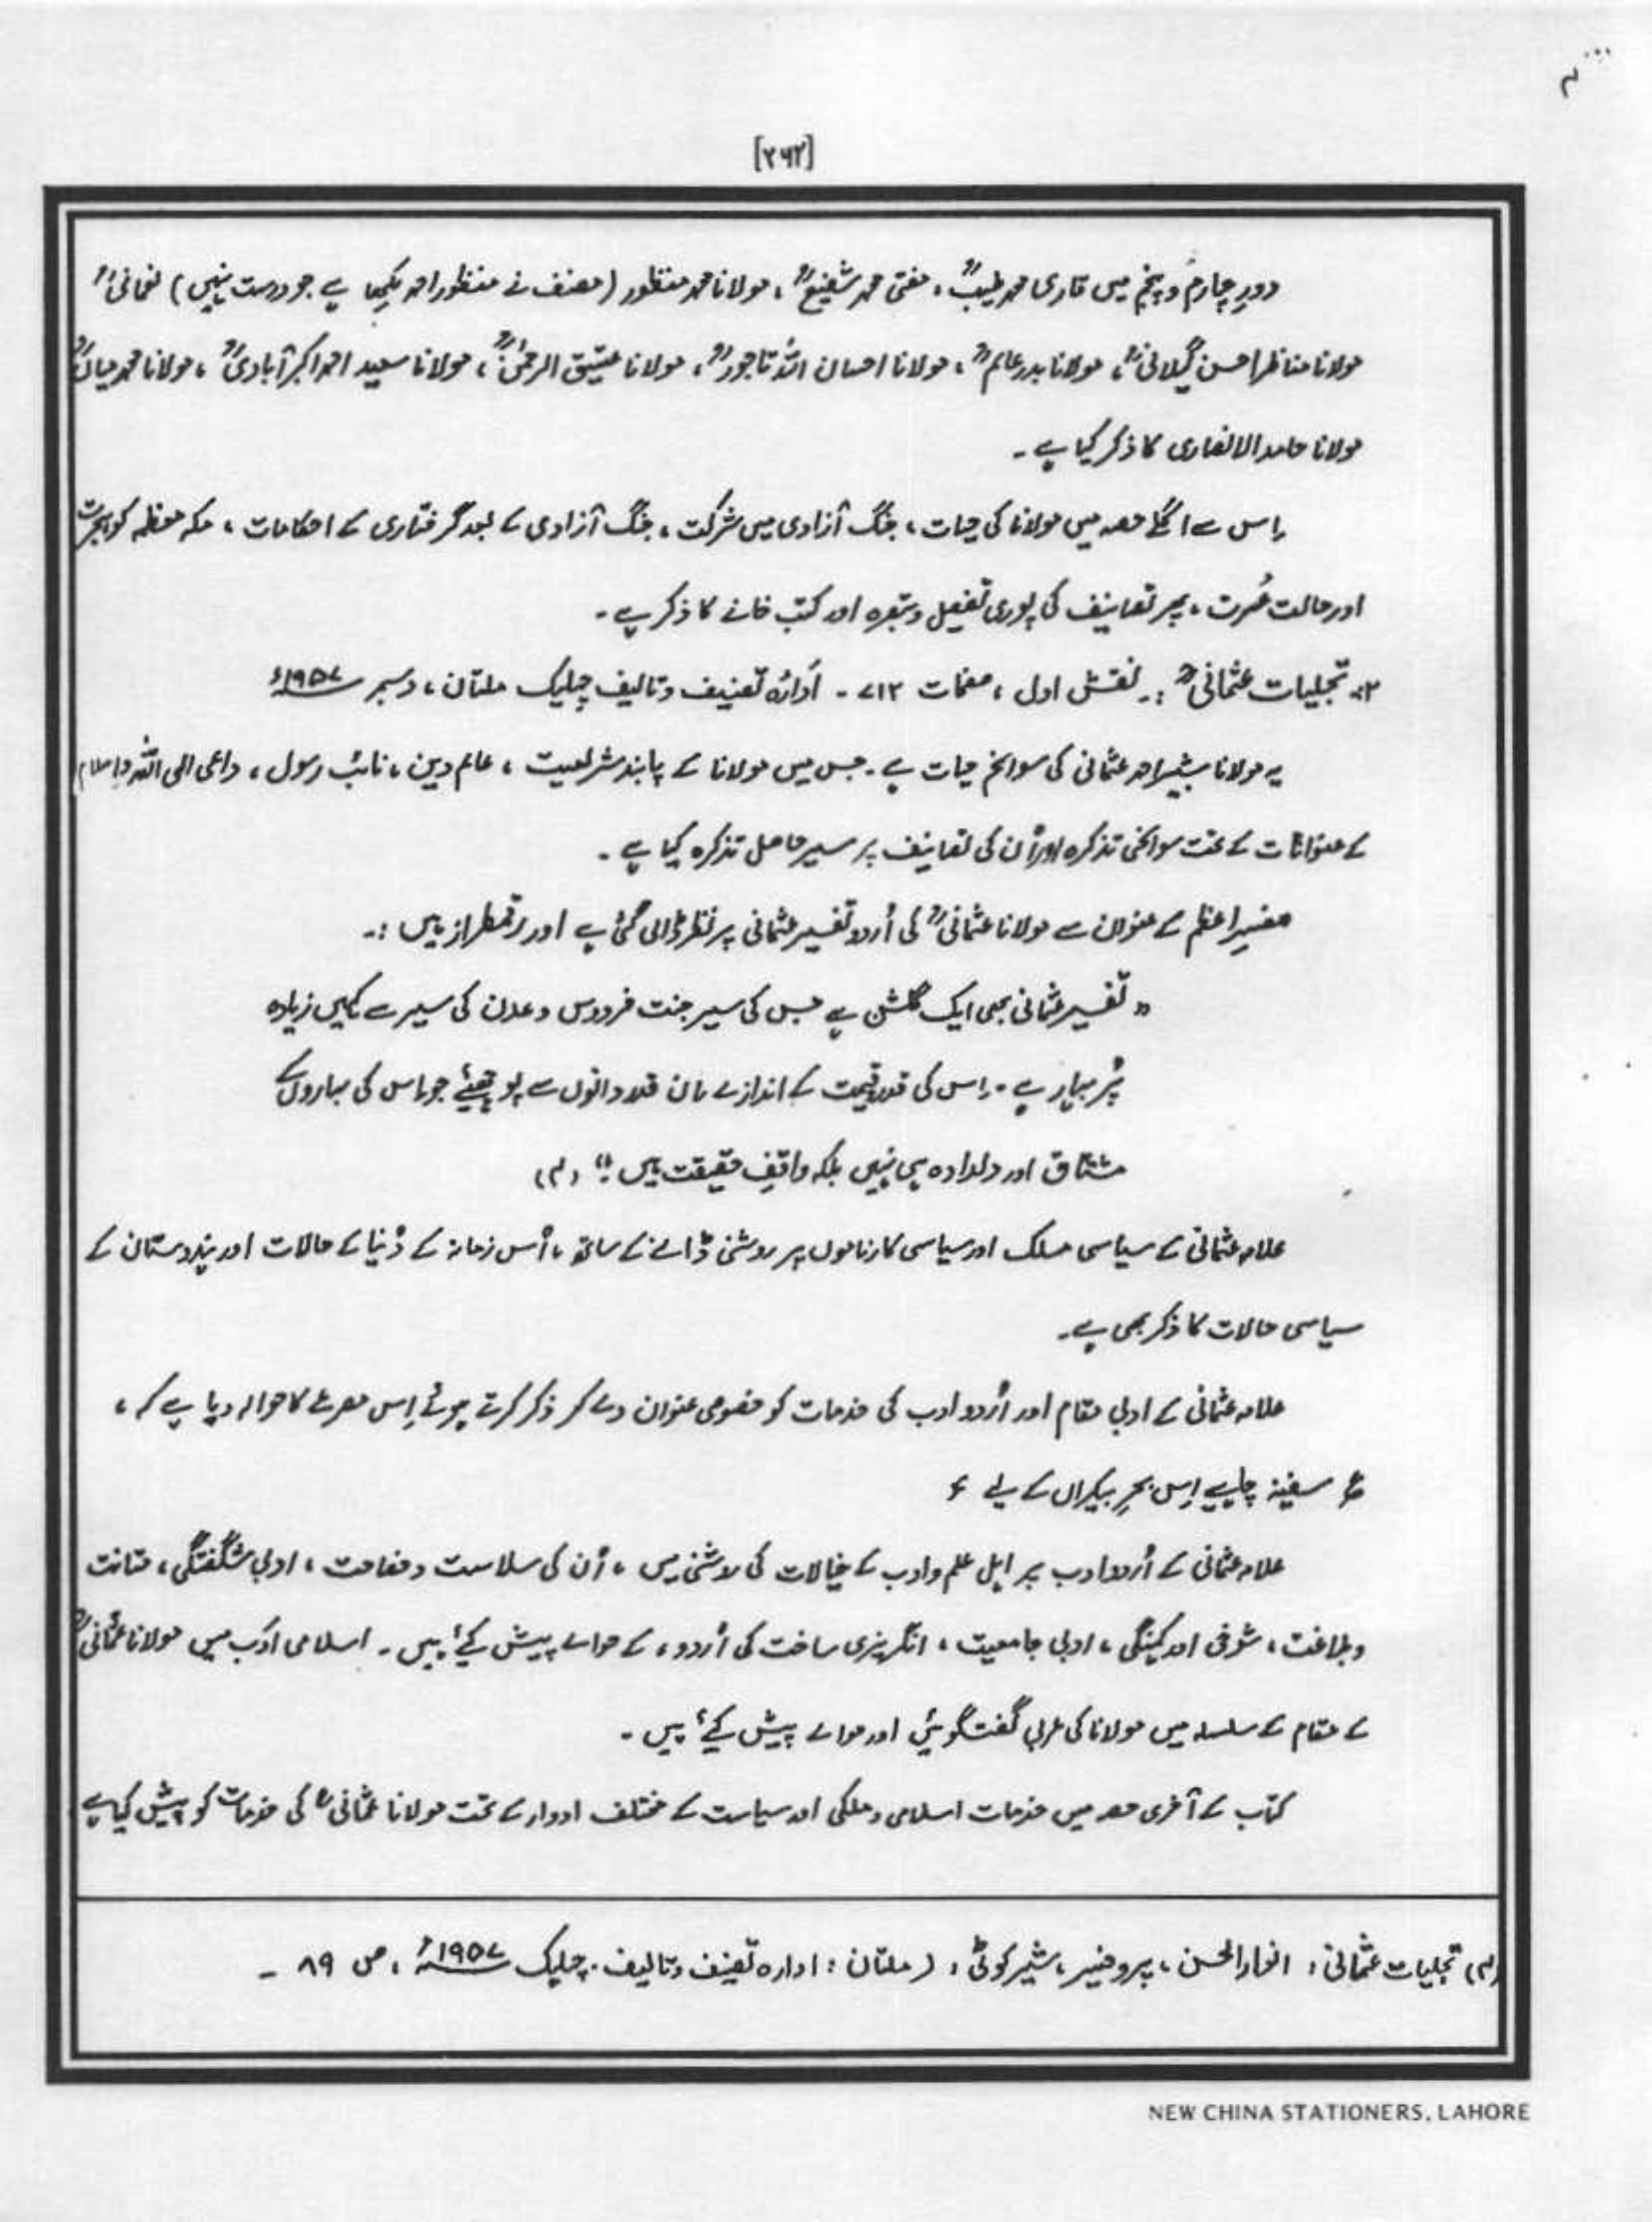 [۲۶۲]
دورِ چہارم و پنجم میں قاری محمد طیبؒ ، مفتی محمد شفیعؒ ، مولانا محمد منظور (مصنف نے منظور احمد لکھا ہے جو درست نہیں) نعمانیؒ
مولانا مناظر احسن گیلانیؒ ، مولانا بدر عالمؒ ، مولانا احسان اللہ تاجورؒ ، مولانا عتیق الرحمٰنؒ ، مولانا سعید احمد اکبر آبادیؒ ، مولانا محمد میاںؒ
مولانا حامد الانصاری کا ذکر کیا ہے ۔
اِس سے اگلے حصہ میں مولانا کی حیات ، جنگ آزادی میں شرکت ، جنگ آزادی کے بعد گرفتاری کے احکامات ، مکہ معظمہ کو ہجرت
اور حالت عُسرت ، پھر تصانیف کی پوری تفصیل و تبصرہ اور کتب خانے کا ذکر ہے ۔
۲:۔ تجلیات عثمانیؒ :۔ نقش اول ، صفحات ۷۱۲ ۔ اَدارۂ تصنیف و تالیف چہلیک ملتان ، دسمبر ۱۹۵۷ء
یہ مولانا شبیر احمد عثمانی کی سوانح حیات ہے ۔ جس میں مولانا کے پابند شریعت ، عالم دین ، نائب رسول ، داعی الی اللہ و اسلام
کے عنوانات کے تحت سوانحی تذکرہ اور اُن کی تصانیف پر سیر حاصل تذکرہ کیا ہے ۔
مفسرِ اعظم کے عنوان سے مولانا عثمانیؒ کی اُردو تفسیر عثمانی پر نظر ڈالی گئی ہے اور رقمطراز ہیں :۔
" تفسیر عثمانی بھی ایک گلشن ہے جس کی سیر جنت فردوس و عدن کی سیر سے کہیں زیادہ
پُر بہار ہے ۔ اِس کی قدر و قیمت کے اندازے اُن قدر دانوں سے پوچھیئے جو اِس کی بہاروں کے
مشتاق اور دلدادہ ہی نہیں بلکہ واقفِ حقیقت ہیں ۔" (۴)
علامہ عثمانی کے سیاسی مسلک اور سیاسی کارناموں پر روشنی ڈالنے کے ساتھ ، اُس زمانہ کے دُنیا کے حالات اور ہندوستان کے
سیاسی حالات کا ذکر بھی ہے ۔
علامہ عثمانی کے ادبی مقام اور اُردو ادب کی خدمات کو خصوصی عنوان دے کر ذکر کرتے ہوئے اِس مصرعے کا حوالہ دیا ہے کہ ،
ع سفینہ چاہیے اِس بحرِ بیکراں کے لیے ء
علامہ عثمانی کے اُردو ادب پر اہل علم و ادب کے خیالات کی روشنی میں ، اُن کی سلاست و فصاحت ، ادبی شگفتگی ، متانت
و بلاغت ، شوخی اور ، ادبی جامعیت ، انگریزی ساخت کی اُردو ، کے حوالے پیش کیے ہیں ۔ اسلامی ادب میں مولانا عثمانیؒ
کے مقام کے سلسلہ میں مولانا کی عربی گفتگوئیں اور حوالے پیش کیے ہیں ۔
کتاب کے آخری حصہ میں خدمات اسلامی و ملکی اور سیاست کے مختلف ادوار کے تحت مولانا عثمانیؒ کی خدمات کو پیش کیا ہے
(۴) تجلیات عثمانی ، انوار الحسن ، پروفیسر ، شیرکوٹی ، (ملتان : ادارہ تصنیف و تالیف ۔ چہلیک ۱۹۵۷ء ، ص ۸۹ ۔
NEW CHINA STATIONERS, LAHORE